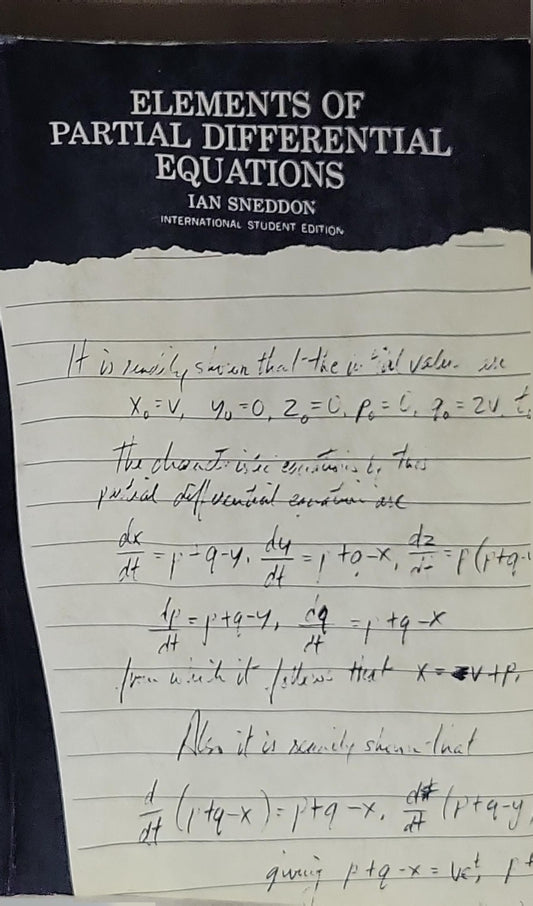 ELEMENTS OF
PARTIAL DIFFERENTIAL
EQUATIONS
IAN SNEDDON
INTERNATIONAL STUDENT EDITION
It is readily shown that the initial values are
x₀ = v, y₀ = 0, z₀ = 0, p₀ = 0, q₀ = 2v, t₀
The characteristic equations of this
partial differential equation are
dx/dt = p+q-y, dy/dt = p+q-x, dz/dt = p(p+q-
dp/dt = p+q-y, dq/dt = p+q-x
from which it follows that x = v+p,
Also it is readily shown that
d/dt (p+q-x) = p+q-x, d/dt (p+q-y
giving p+q-x = veᵗ, p+